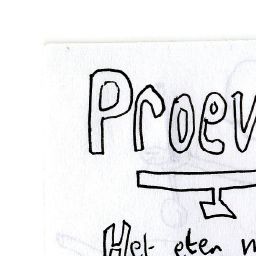 Proev
Het eten